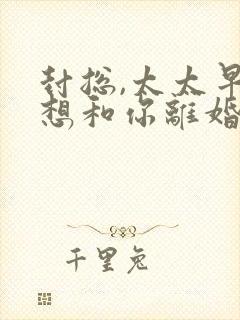 封总,太太早
想和你離婚
千里兔